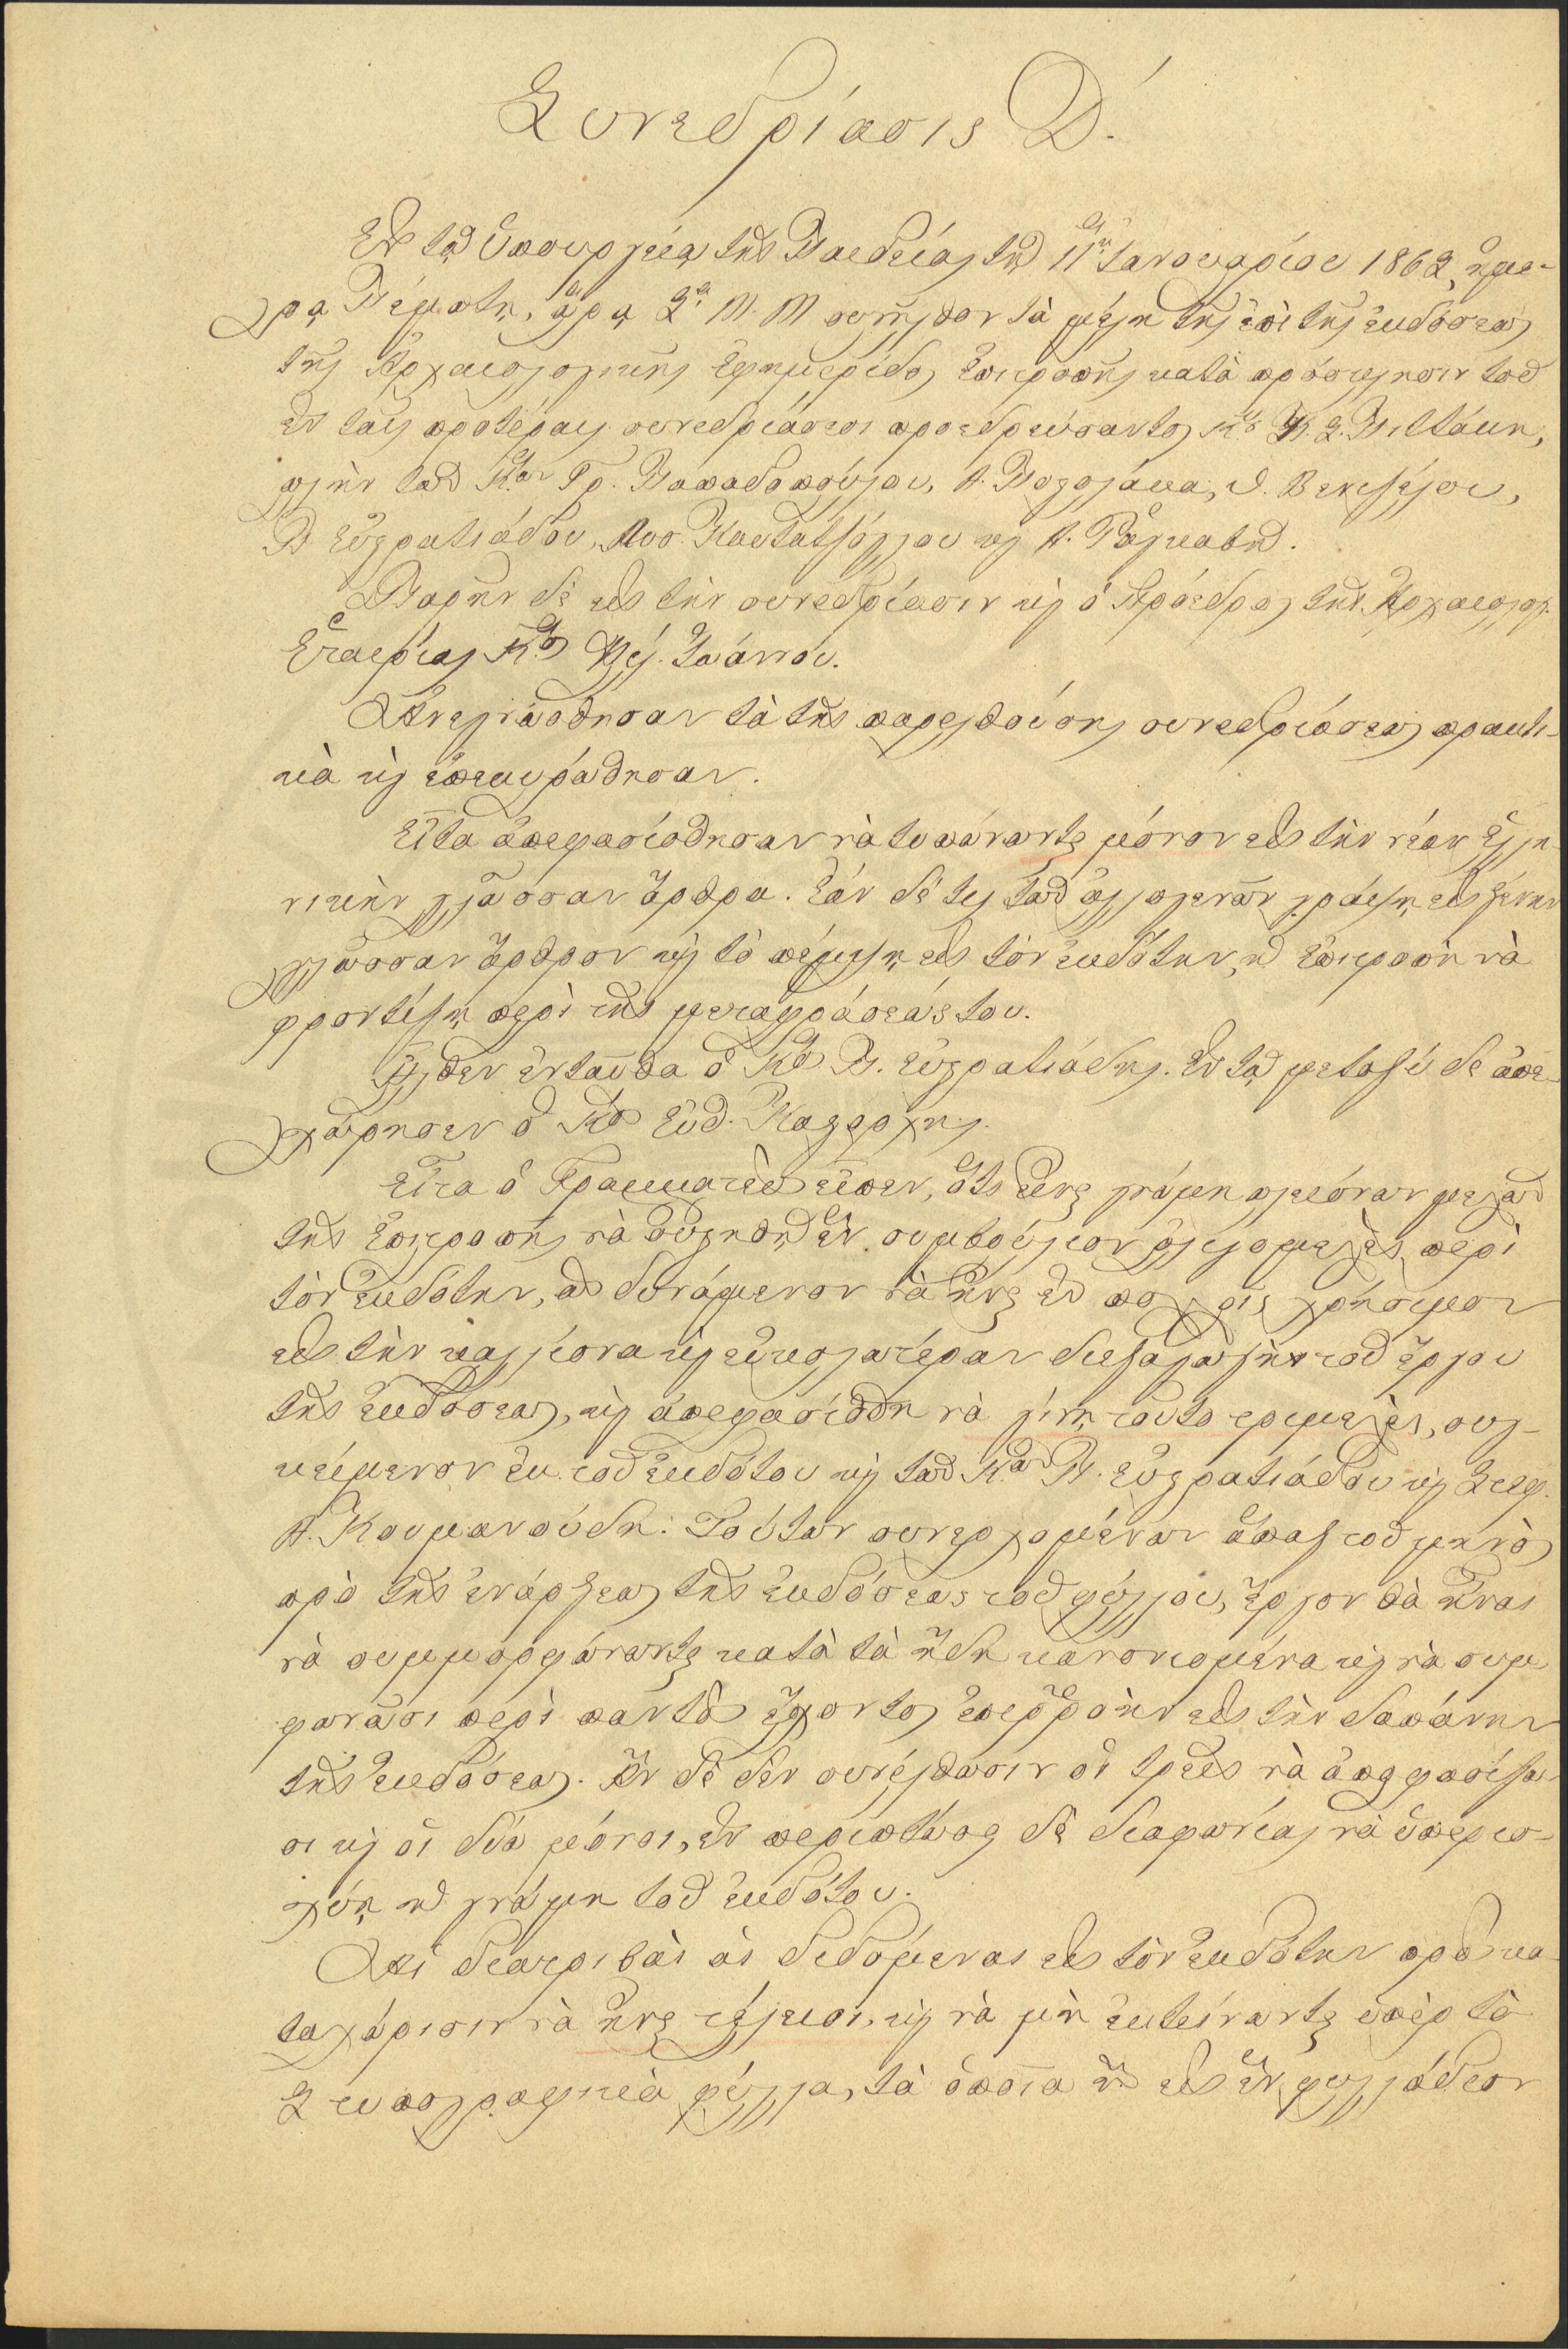 Συνεδρίασις Δ΄.
Ἐν τῷ Ὑπουργείῳ τῆς Παιδείας τῇ 11ῃ Ἰανουαρίου 1862, ἡμέ-
ρᾳ Πέμπτῃ, ὥρᾳ 2ᾳ Μ.Μ συνῆλθον τὰ μέλη τῆς ἐπὶ τῆς ἐκδόσεως
τῆς Ἀρχαιολογικῆς Ἐφημερίδος Ἐπιτροπῆς κατὰ πρόσκλησιν τοῦ
ἐν ταῖς προτέραις συνεδριάσεσι προεδρεύσαντος Κυ Κ. Δ. Πιττάκη,
πλὴν τῶν Κων Γρ. Παπαδοπούλου, Α. Πολολάκα, Θ. Βενιζέλου,
Π. Εὐστρατιάδου, Κουταντσόγλου κ A. Ῥαγκαβῆ.
Παρῆν δὲ εἰς τὴν συνεδρίασιν κ ὁ Πρόεδρος τῆς Ἀρχαιολογ.
Ἑταιρίας Κος Φίλ. Ἰωάννου.
Ἀνεγνώσθησαν τὰ τῆς παρελθούσης συνεδριάσεως πρακτι-
κὰ κ ἐπεκυρώθησαν.
Εἶτα ἀπεφασίσθησαν νὰ τυπώνωνται μόνον εἰς τὴν νέαν ἑλλη-
νικὴν γλῶσσαν ἄρθρα. Ἐὰν δέ τις τῶν ἀλλογενῶν γράψῃ εἰς ξένην
γλῶσσαν ἄρθρον κ τὸ πέμψῃ εἰς τὸν ἐκδότην, ἡ Ἐπιτροπὴ νὰ
φροντίσῃ περὶ τῆς μεταφράσεώς του.
Ἦλθεν ἐνταῦθα ὁ Κος Π. Εὐστρατιάδης. Ἐν τῷ μεταξὺ δὲ ἀπε-
χώρησεν ὁ Κος Εὐθ. Καστόρχης.
Εἶτα ὁ Γραμματεὺς εἶπεν, ὅτι εἶναι γνώμη πλειόνων μελῶν
τῆς Ἐπιτροπῆς νὰ συστηθῇ ἓν συμβούλιον ὀλιγομελὲς περὶ
τὸν ἐκδότην, ὡς δυνάμενον νὰ ἦναι ἐν πολλοῖς χρήσιμον
εἰς τὴν καλλίονα κ εὐκολωτέραν διεξαγωγὴν τοῦ ἔργου
τῆς ἐκδόσεως, κ ἀπεφασίσθη νὰ γίνῃ τοῦτο τριμελὲς, συγ-
κείμενον ἐκ τοῦ ἐκδότου κ τῶν Κων Π. Εὐστρατιάδου κ Στεφ.
Α. Κουμανούδη. Τούτων συνερχομένων ἅπαξ τοῦ μηνὸς
πρὸ τῆς ἐνάρξεως τῆς ἐκδόσεως τοῦ φύλλου, ἔργον θὰ ἦναι
νὰ συμμορφώνωνται κατὰ τὰ ἤδη κανονισμένα κ νὰ συμ-
φωνῶσι περὶ παντὸς ἔχοντος ἐπιρροὴν εἰς τὴν δαπάνην
τῆς ἐκδόσεως. Ἂν δὲ δὲν συνέλθωσιν οἱ τρεῖς νὰ ἀποφασίζω-
σι κ οἱ δύο μόνοι, ἐν περιπτώσει δὲ διαφωνίας νὰ ὑπερισ-
χύῃ ἡ γνώμη τοῦ ἐκδότου.
Αἱ διατριβαὶ αἱ διδόμεναι εἰς τὸν ἐκδότην πρὸς κα-
ταχώρισιν νὰ ἦναι τέλειαι, κ νὰ μὴν ἐκτείνωνται ὑπὲρ τὰ
2 τυπογραφικὰ φύλλα, τὰ ὁποῖα ἢ εἰς ἓν φυλλάδιον